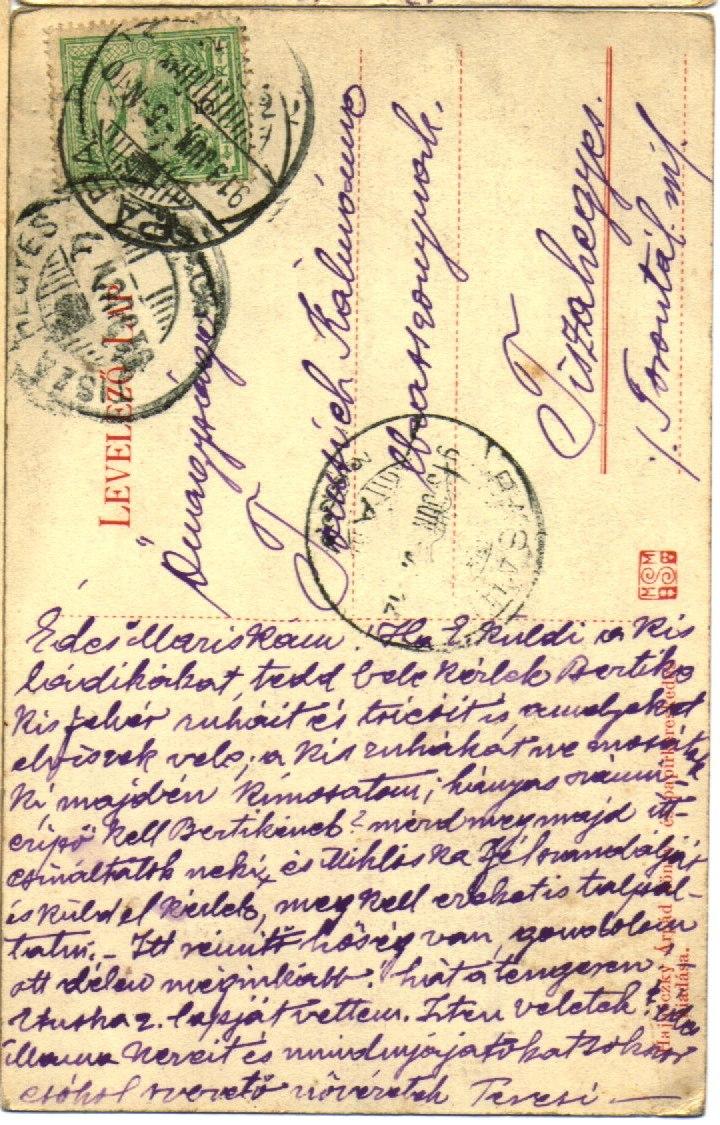 LEVELEZŐ LAP
Őnagysága
Kálmánné
Tiszahegyes.
(Torontál m.)
Édes Mariskám! Ha E küldi a kis
ládikákat, tedd bele kérlek Bertike
kis fehér ruháit és tricóit is, amelyeket
elviszek vele; a kis ruhákát ne
ki majd én kimosatom; hányas számú
cipő kell Bertikének? mérd meg majd itt
csináltatok neki, és Miklóska
is küld el kérlek, meg kell ezeket is talpal-
tatni. - Itt rémítő hőség van, gondolom
ott délen méginkább! hát a tengeren,
2. lapját vettem. Isten veletek!
mama kezeit és mindnyájatokat sokszor
csókol szerető nővéretek Teresi